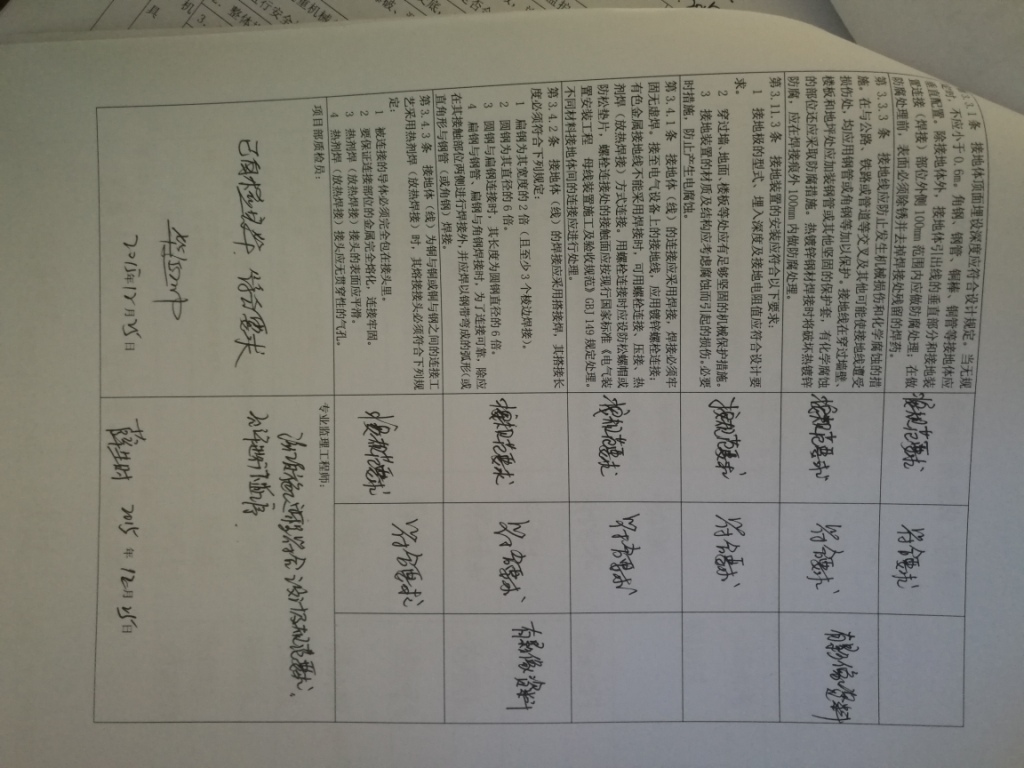 第3.3.1条 接地体顶面埋设深度应符合设计规定。当无规
定时，不应小于0.6m。角钢、钢管、铜棒、铜管等接地体应
垂直配置。除接地体外，接地体引出线的垂直部分和接地装
置连接（焊接）部位外侧100mm范围内应做防腐处理；在做
防腐处理前，表面必须除锈并去掉焊接处残留的焊药。
按规范要求
符合要求
第3.3.3条 接地线应防止发生机械损伤和化学腐蚀的措
施。在与公路、铁路或管道等交叉及其他可能使接地线遭受
损伤处，均应用钢管或角钢等加以保护。接地线在穿过墙壁、
楼板和地坪处应加装钢管或其他坚固的保护套，有化学腐蚀
的部位还应采取防腐措施。热镀锌钢材焊接时将破坏热镀锌
防腐，应在焊接痕外100mm内做防腐处理。
按规范要求
符合要求
有影像资料
第3.11.3条 接地装置的安装应符合以下要求：
1 接地极的型式、埋入深度及接地电阻值应符合设计要
求。
2 穿过墙、地面、楼板等处应有足够坚固的机械保护措施。
3 接地装置的材质及结构应考虑腐蚀而引起的损伤。必要
时措施，防止产生电腐蚀。
按规范要求
符合要求
第3.4.1条 接地体（线）的连接应采用焊接，焊接必须牢
固无虚焊。接至电气设备上的接地线，应用镀锌螺栓连接；
有色金属接地线不能采用焊接时，可用螺栓连接、压接、热
剂焊（放热焊接）方式连接。用螺栓连接时应设防松螺帽或
防松垫片，螺栓连接处的接触面应按现行国家标准《电气装
置安装工程 母线装置施工及验收规范》GBJ 149规定处理。
不同材料接地体间的连接应进行处理。
按规范要求
符合要求
第3.4.2条 接地体（线）的焊接应采用搭接焊，其搭接长
度必须符合下列规定：
1 扁钢为其宽度的2倍（且至少3个棱边焊接）。
2 圆钢为其直径的6倍。
3 圆钢与扁钢连接时，其长度为圆钢直径的6倍。
4 扁钢与钢管、扁钢与角钢焊接时，为了连接可靠，除应
在其接触部位两侧进行焊接外，并应焊以钢带弯成的弧形（或
直角形与钢管（或角钢）焊接。
按规范要求
符合要求
有影像资料
第3.4.3条 接地体（线）为铜与铜或铜与钢之间的连接工
艺采用热剂焊（放热焊接）时，其熔接接头必须符合下列规
定：
1 被连接的导体必须完全包在接头里。
2 要保证连接部位的金属完全熔化，连接牢固。
3 热剂焊（放热焊接）接头的表面应平滑。
4 热剂焊（放热焊接）接头应无贯穿性的气孔。
按规范要求
符合要求
项目部质检员：
符合要求
2015年12月25日
专业监理工程师：
2015年12月25日